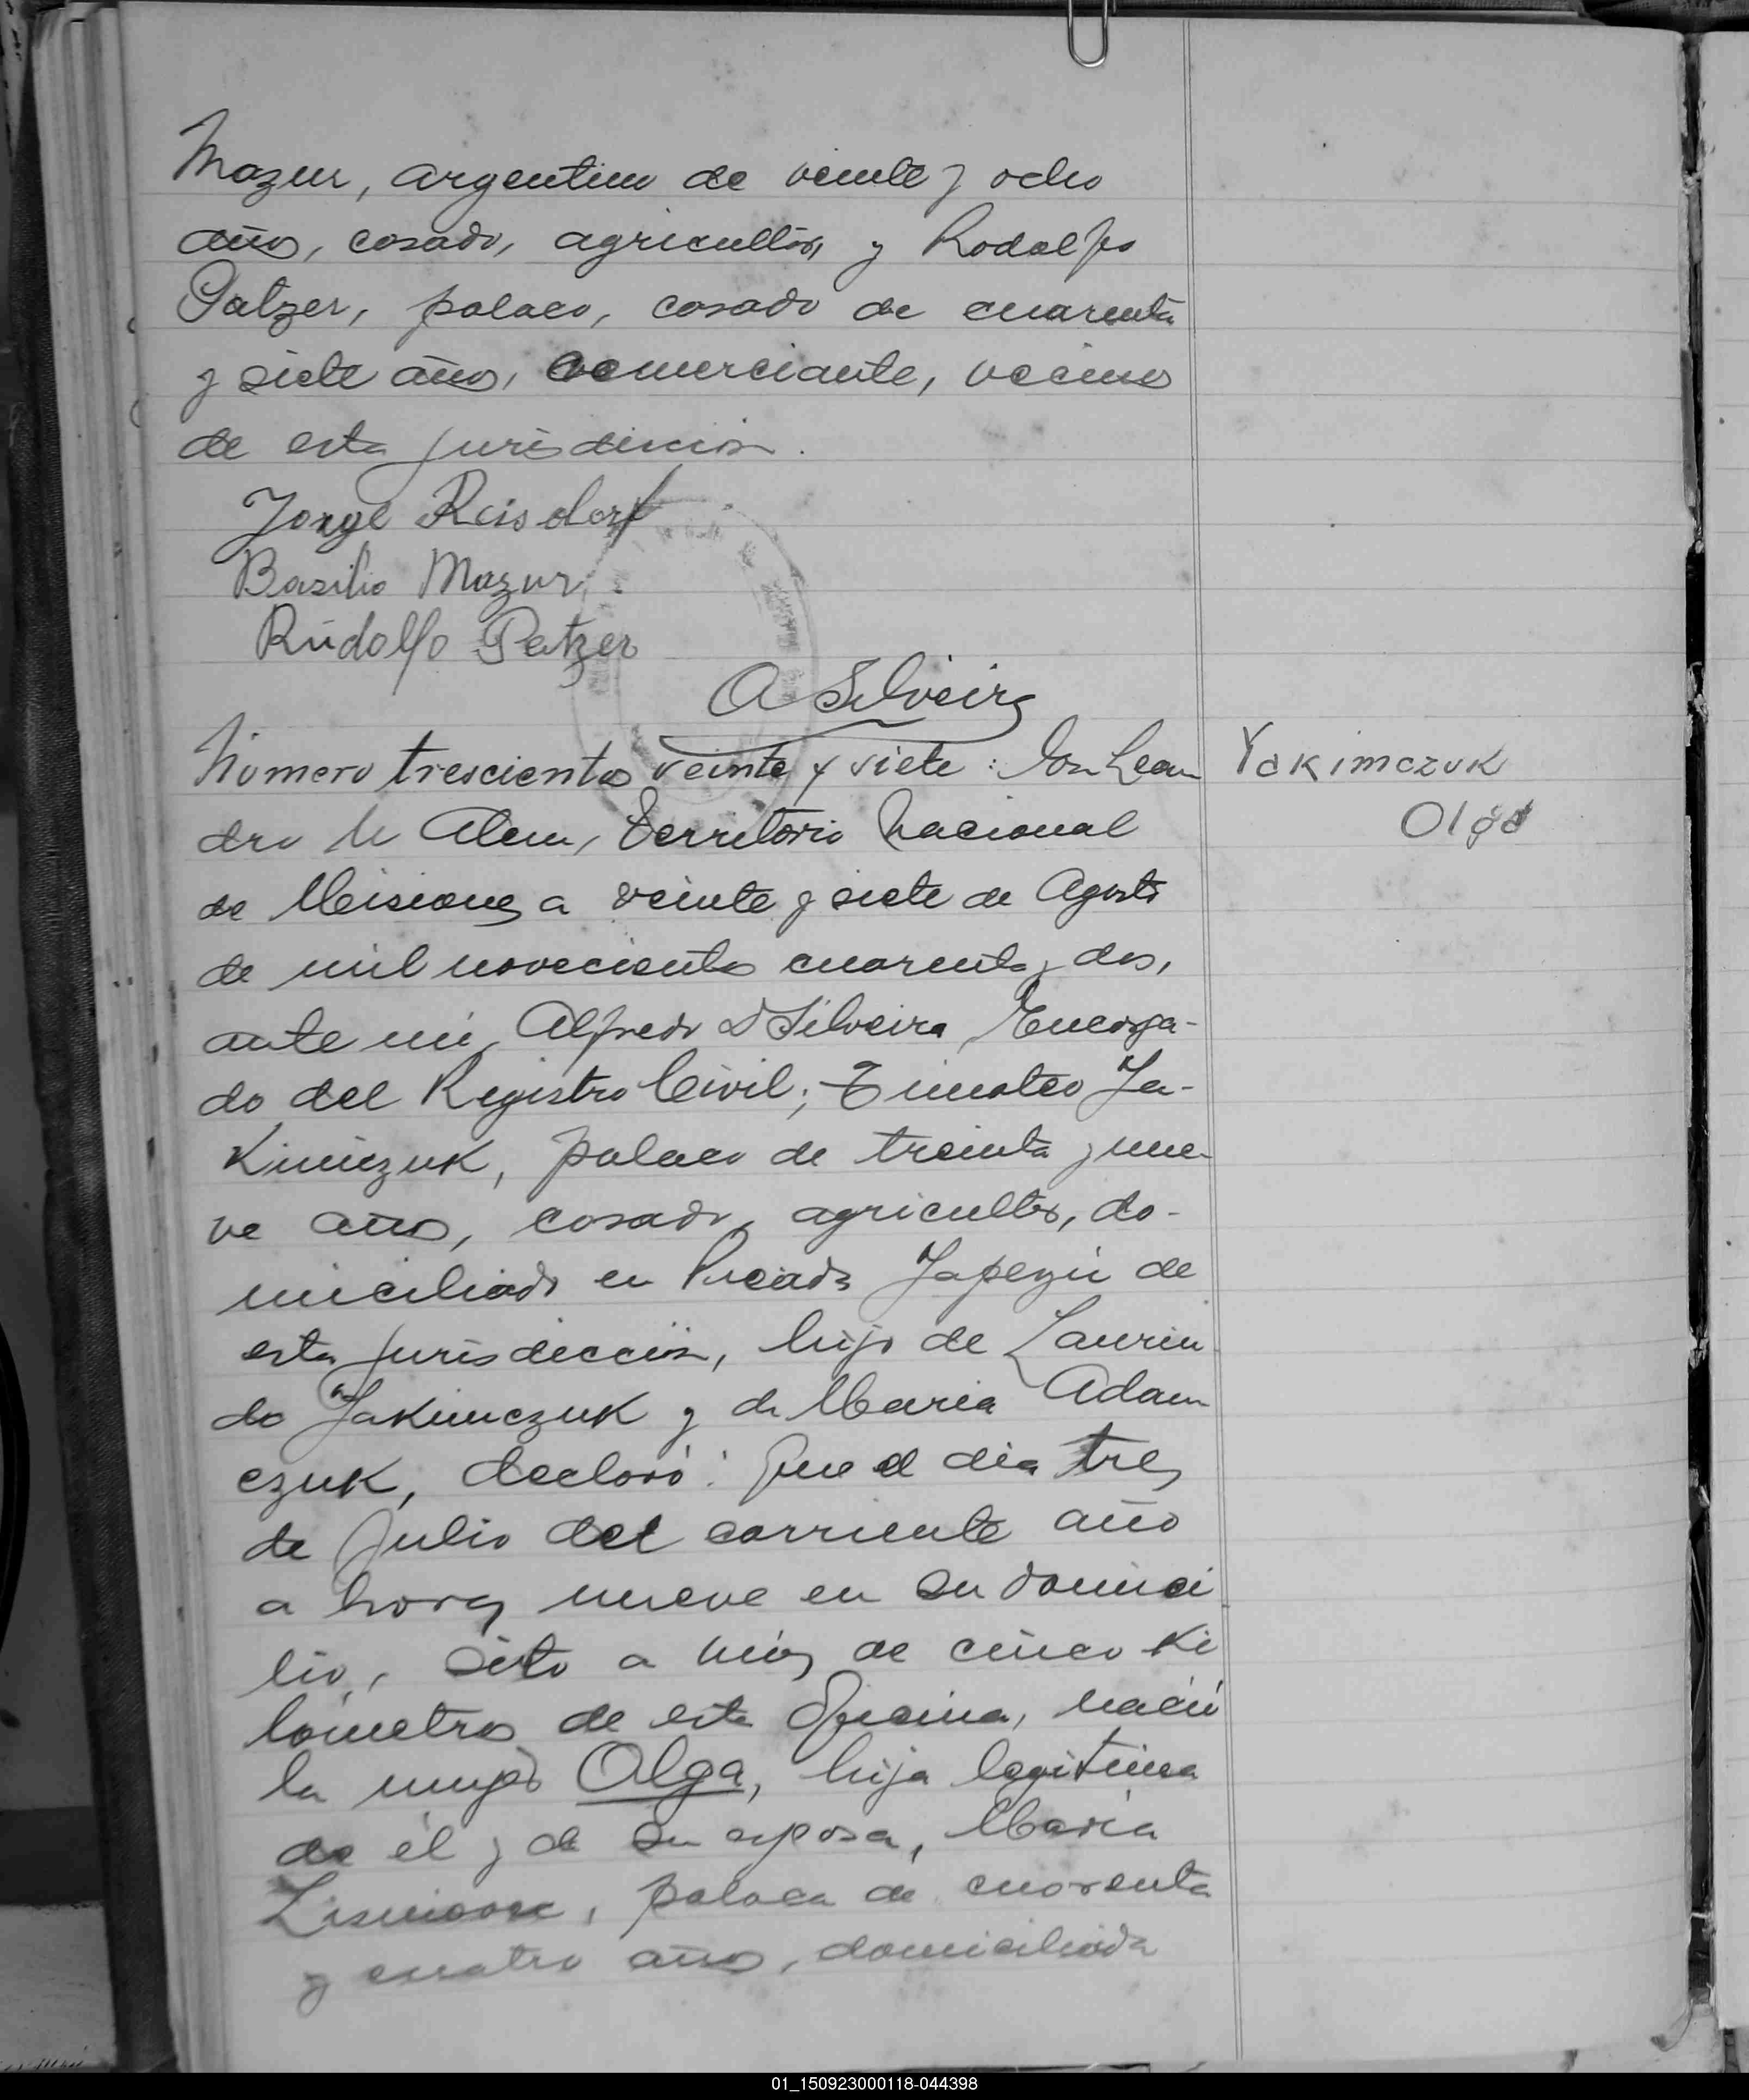 Mazur, argentino de veinte y ocho
años, casado, agricultor, y Rodolfo
Patzer, polaco, casado de cuarenta
y siete años, comerciante, vecinos
de esta jurisdiccion.
Jorge Reisdorf
Basilio Mazur
Rudolfo Patzer
A Silveira
Número trescientos veinte y siete: En Lean
Yakimczuk
dro N Alem, Territorio Nacional
Olga
de Misiones a veinte y siete de Agosto
de mil novecientos cuarenta y dos,
ante mi, Alfredo D Silveira, Encarga-
do del Registro Civil; Timoteo Ja-
kimczuk, polaco de treinta y nue-
ve años, casado, agricultor, do-
miciliado en Picada Japeyú de
esta jurisdiccion, hijo de Laurin
do Jakimczuk y de Maria Adam
czuk, declaró: Que el dia tres
de Julio del corriente año
a horas nueve en su domici
lio, sito a más de cinco ki
lómetros de esta Oficina, nació
la mujer Olga, hija legitima
de él y de su esposa, Maria
polaca de cuarenta
y cuatro años, domiciliada
01_150923000118-044398